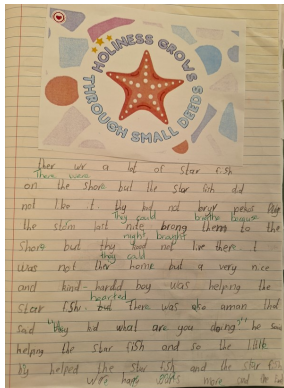 HOLINESS GROWS
THROUGH SMALL DEEDS
ther wr a lot of star fish
There were
on the shore but the star fish did
not like it. thy kud not bryr
They could breathe
the storm last nite brong them to the
night brought
Shore but thy not live there. it
they could
was not ther home but a very nice
and kind-hardd boy was helping the
hearted
star fish. but there was a man that
said "hey kid what are you doing" he said
helping the star fish and so the little
helped the star fish and the star fish
were happy